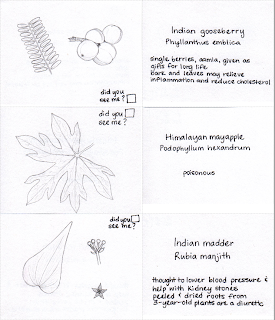 did you
see me?
Indian gooseberry
Phyllanthus emblica
single berries, aamla, given as
gifts for long life
Bark and leaves may relieve
inflammation and reduce cholesterol
did you
see me?
Himalayan mayapple
Podophyllum hexandrum
poisonous
did you
see me?
Indian madder
Rubia manjith
thought to lower blood pressure &
help with kidney stones
peeled & dried roots from
3-year-old plants are a diuretic